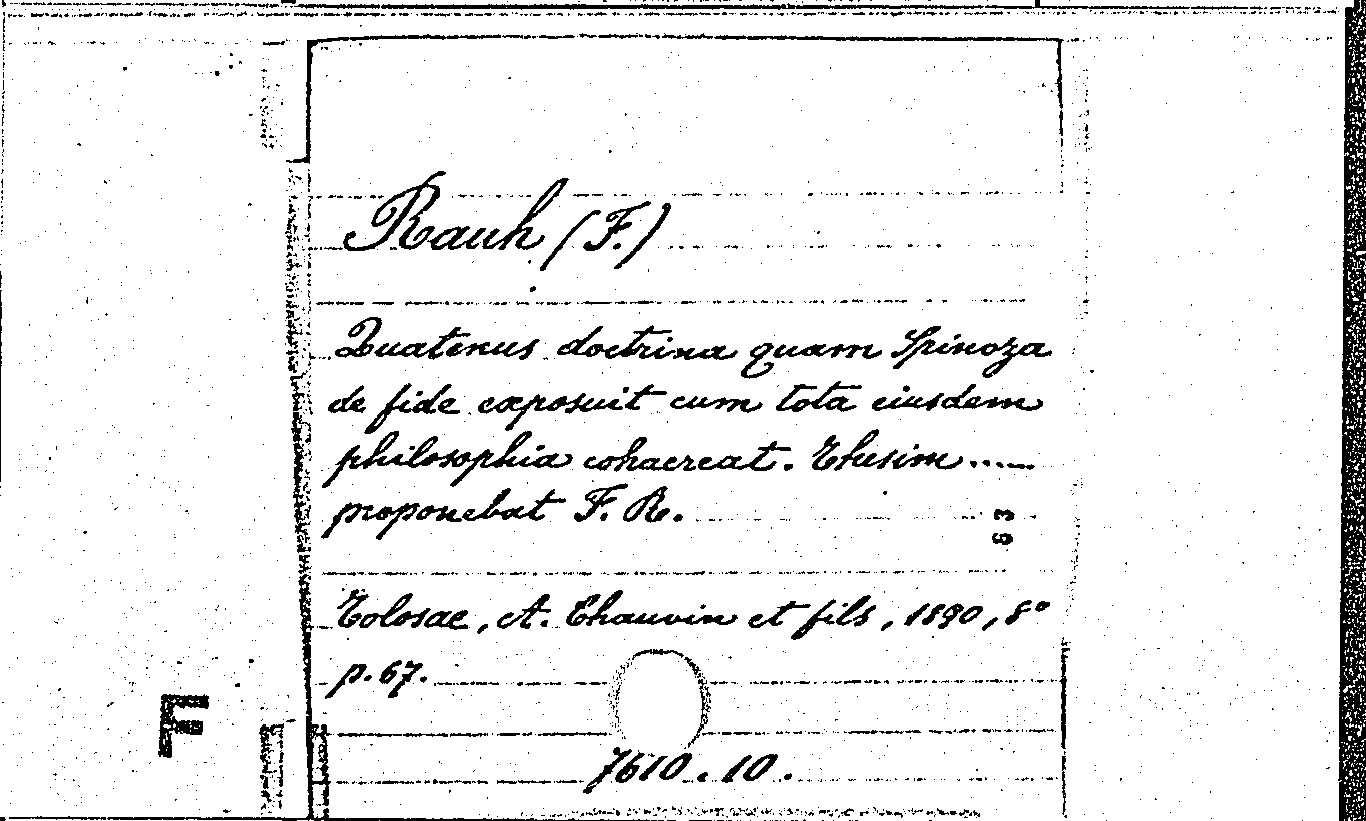 Rauh (F.)
Quatenus doctrina quam Spinoza
de fide exposuit cum tota eiusdem
philosophia cohaereat. Thesim ......
proponebat F. R.
63
Tolosae, A. Chauvin et fils, 1890, 8°
p. 67.
F
7610. 10.